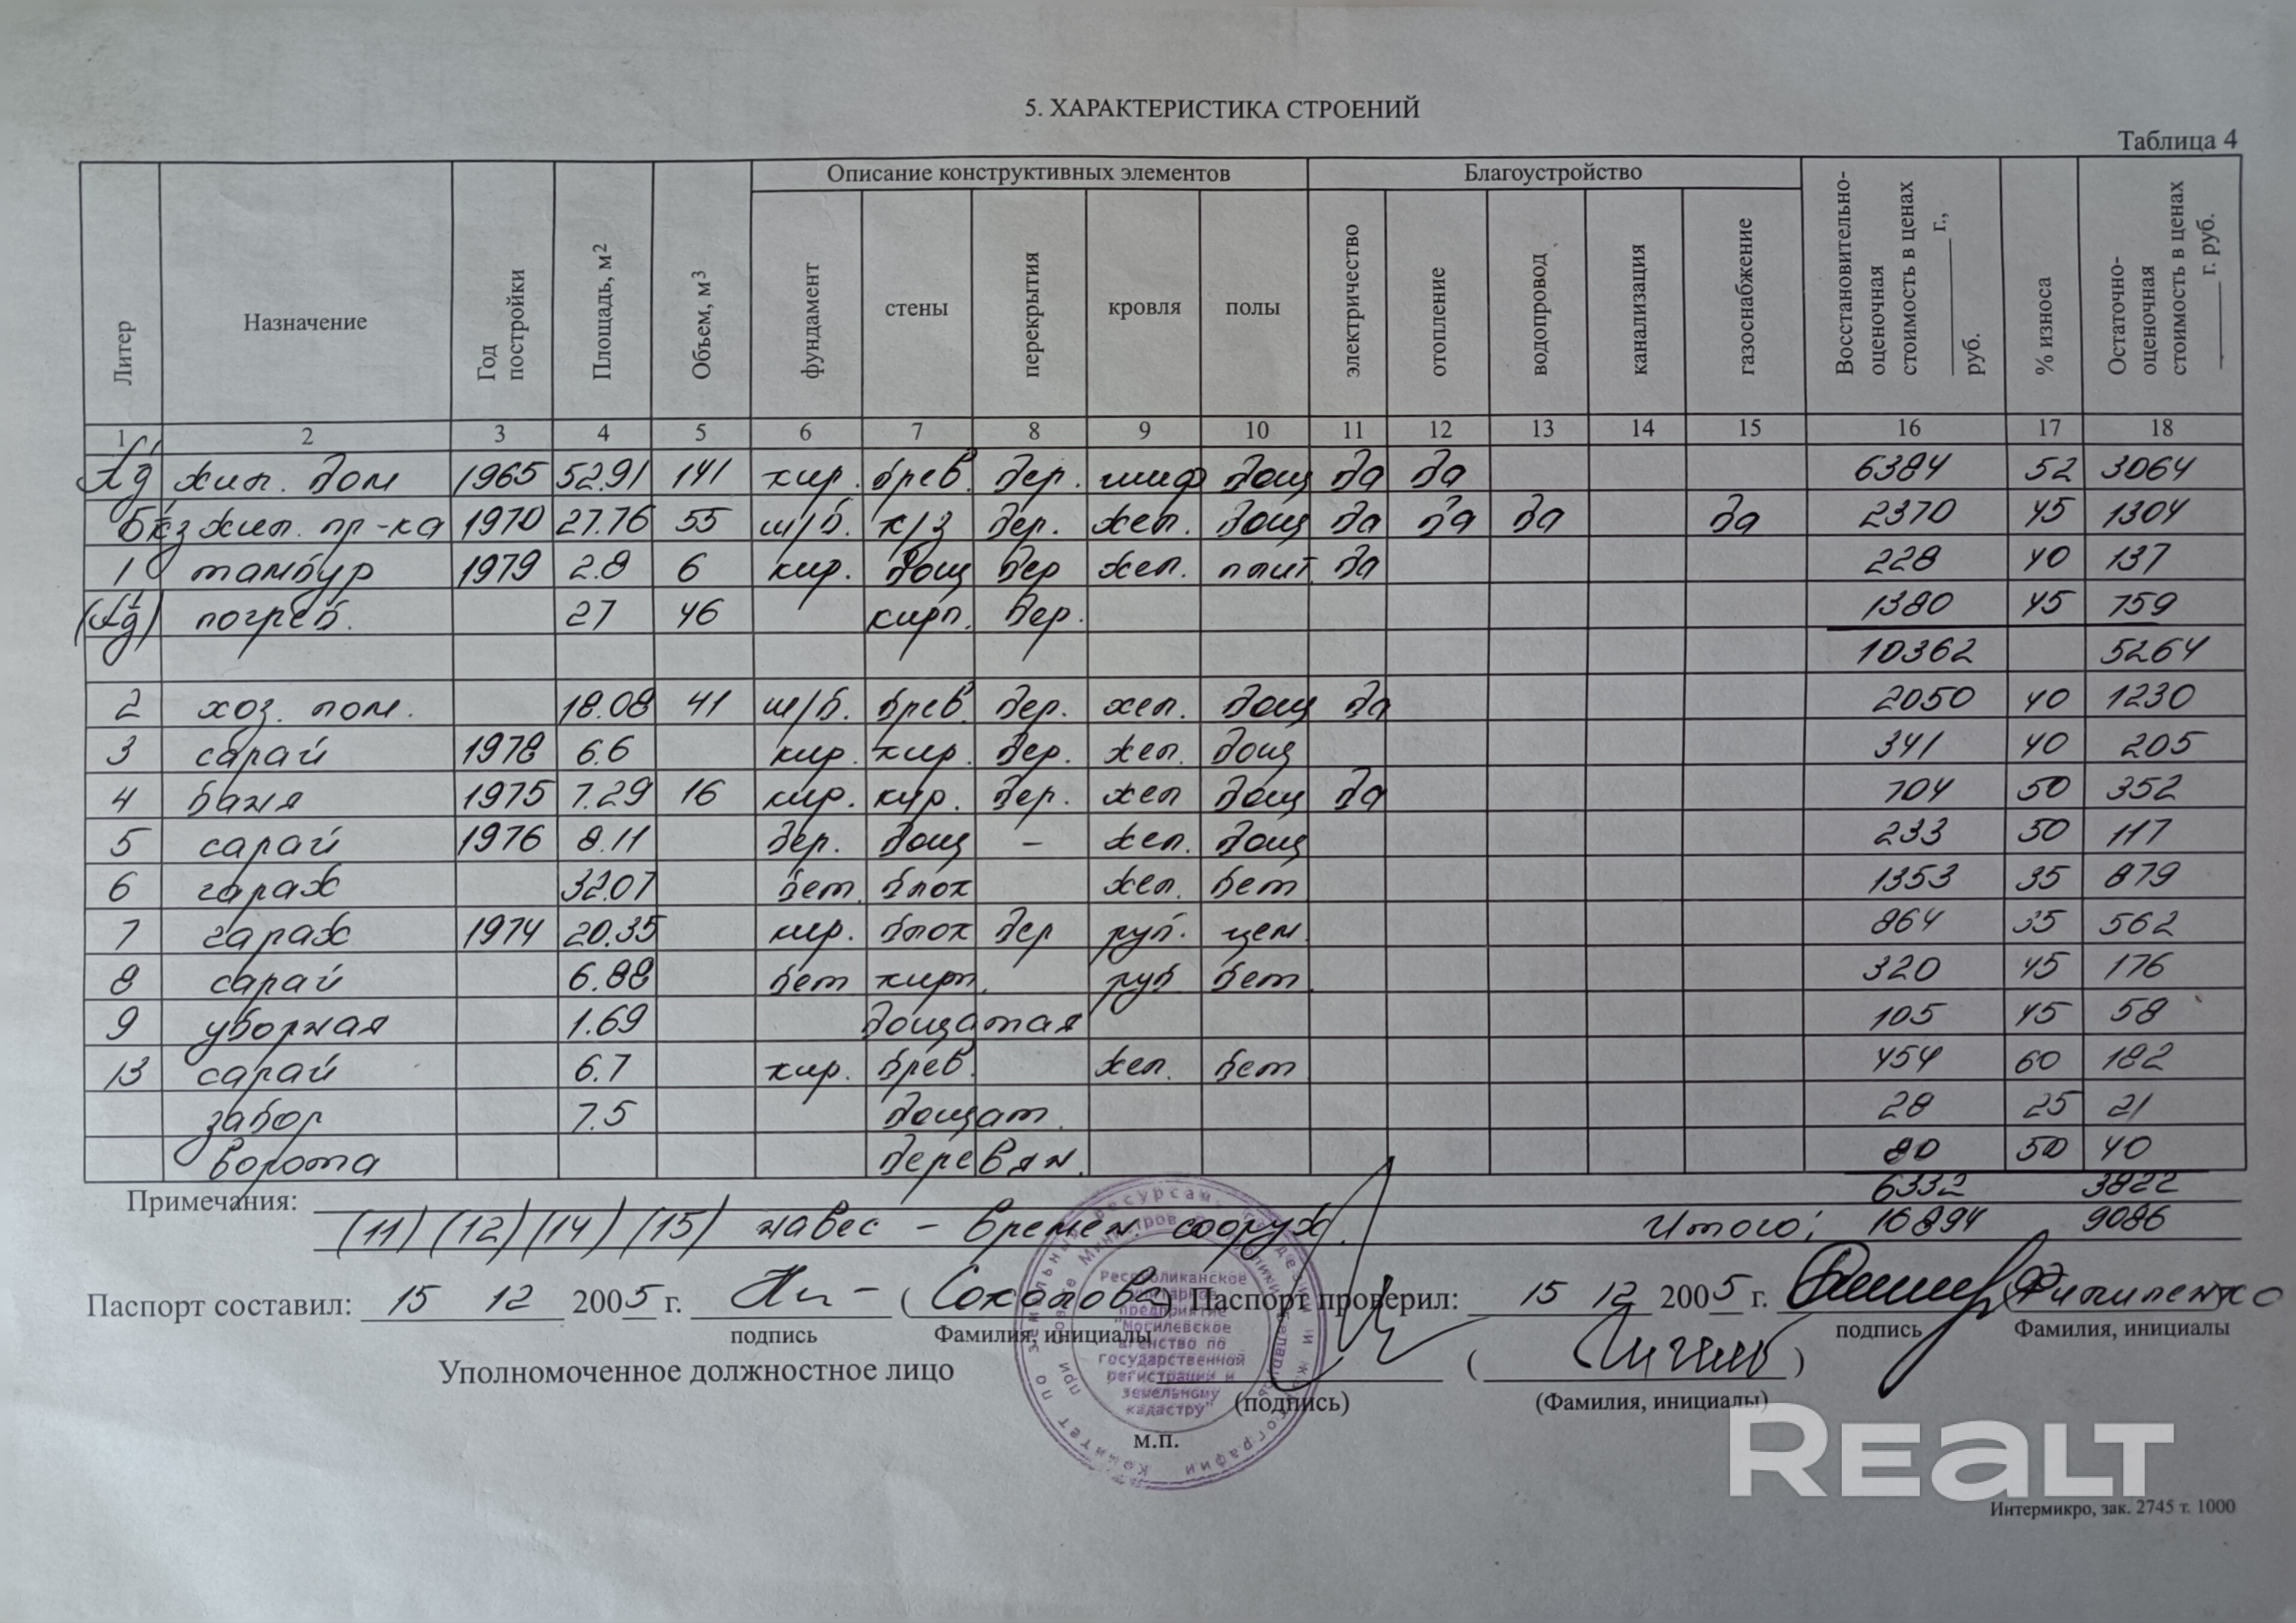 5. ХАРАКТЕРИСТИКА СТРОЕНИЙ
Таблица 4
Литер Назначение Год постройки Площадь, м² Объем, м³ Описание конструктивных элементов Благоустройство Восстановительно-оценочная стоимость в ценах ____ г., ____ руб. % износа Остаточно-оценочная стоимость в ценах ____ г. руб.
фундамент стены перекрытия кровля полы электричество отопление водопровод канализация газоснабжение
1 2 3 4 5 6 7 8 9 10 11 12 13 14 15 16 17 18
жил. дом 1965 52.91 141 кир. брев. дер. шиф дощ да да 6384 52 3064
жил. пр-ка 1970 27.76 55 ш/б. к/з дер. жел. дощ да да да да 2370 45 1304
1 тамбур 1979 2.8 6 кир. дощ дер жел. плит. да 228 40 137
погреб. 27 46 кирп. дер. 1380 45 759
10362 5264
2 хоз. пом. 18.08 41 ш/б. брев. дер. жел. дощ да 2050 40 1230
3 сарай 1978 6.6 кир. кир. дер. жел. дощ 341 40 205
4 баня 1975 7.29 16 кир. кир. дер. жел дощ да 704 50 352
5 сарай 1976 8.11 дер. дощ – жел. дощ 233 50 117
6 гараж 32.07 бет. блок жел. бет 1353 35 879
7 гараж 1974 20.35 кир. блок дер руб. цем. 864 35 562
8 сарай 6.88 бет кирп. руб бет. 320 45 176
9 уборная 1.69 дощатая 105 45 58
13 сарай 6.7 кир. брев. жел. бет 454 60 182
забор 7.5 дощат. 28 25 21
ворота деревян. 80 50 40
Примечания: 6332 3822
(11) (12) (14) (15) навес – времен. сооруж. Итого: 16894 9086
Паспорт составил: 15 12 2005 г. (Соколова) Паспорт проверил: 15 12 2005 г. (Филипенко
подпись Фамилия, инициалы подпись Фамилия, инициалы
Уполномоченное должностное лицо ( )
(подпись) (Фамилия, инициалы)
м.п.
Республиканское
унитарное
предприятие
"Могилевское
агентство по
государственной
регистрации и
земельному
кадастру"
REALT
Интермикро, зак. 2745 т. 1000